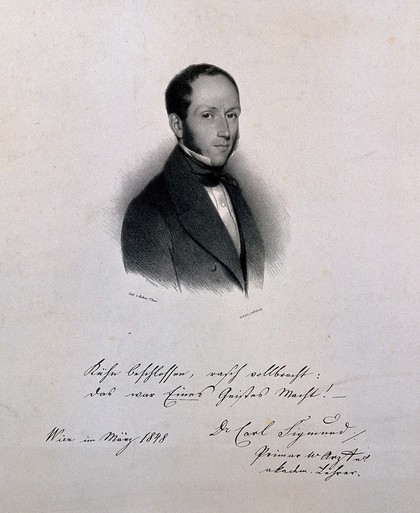 Kühn beschlossen, rasch vollbracht:
das war Eines Geistes Macht! —
Wien im März 1848
Dr Carl Sigmund
Primar Arzt
akadm. Lehrer.